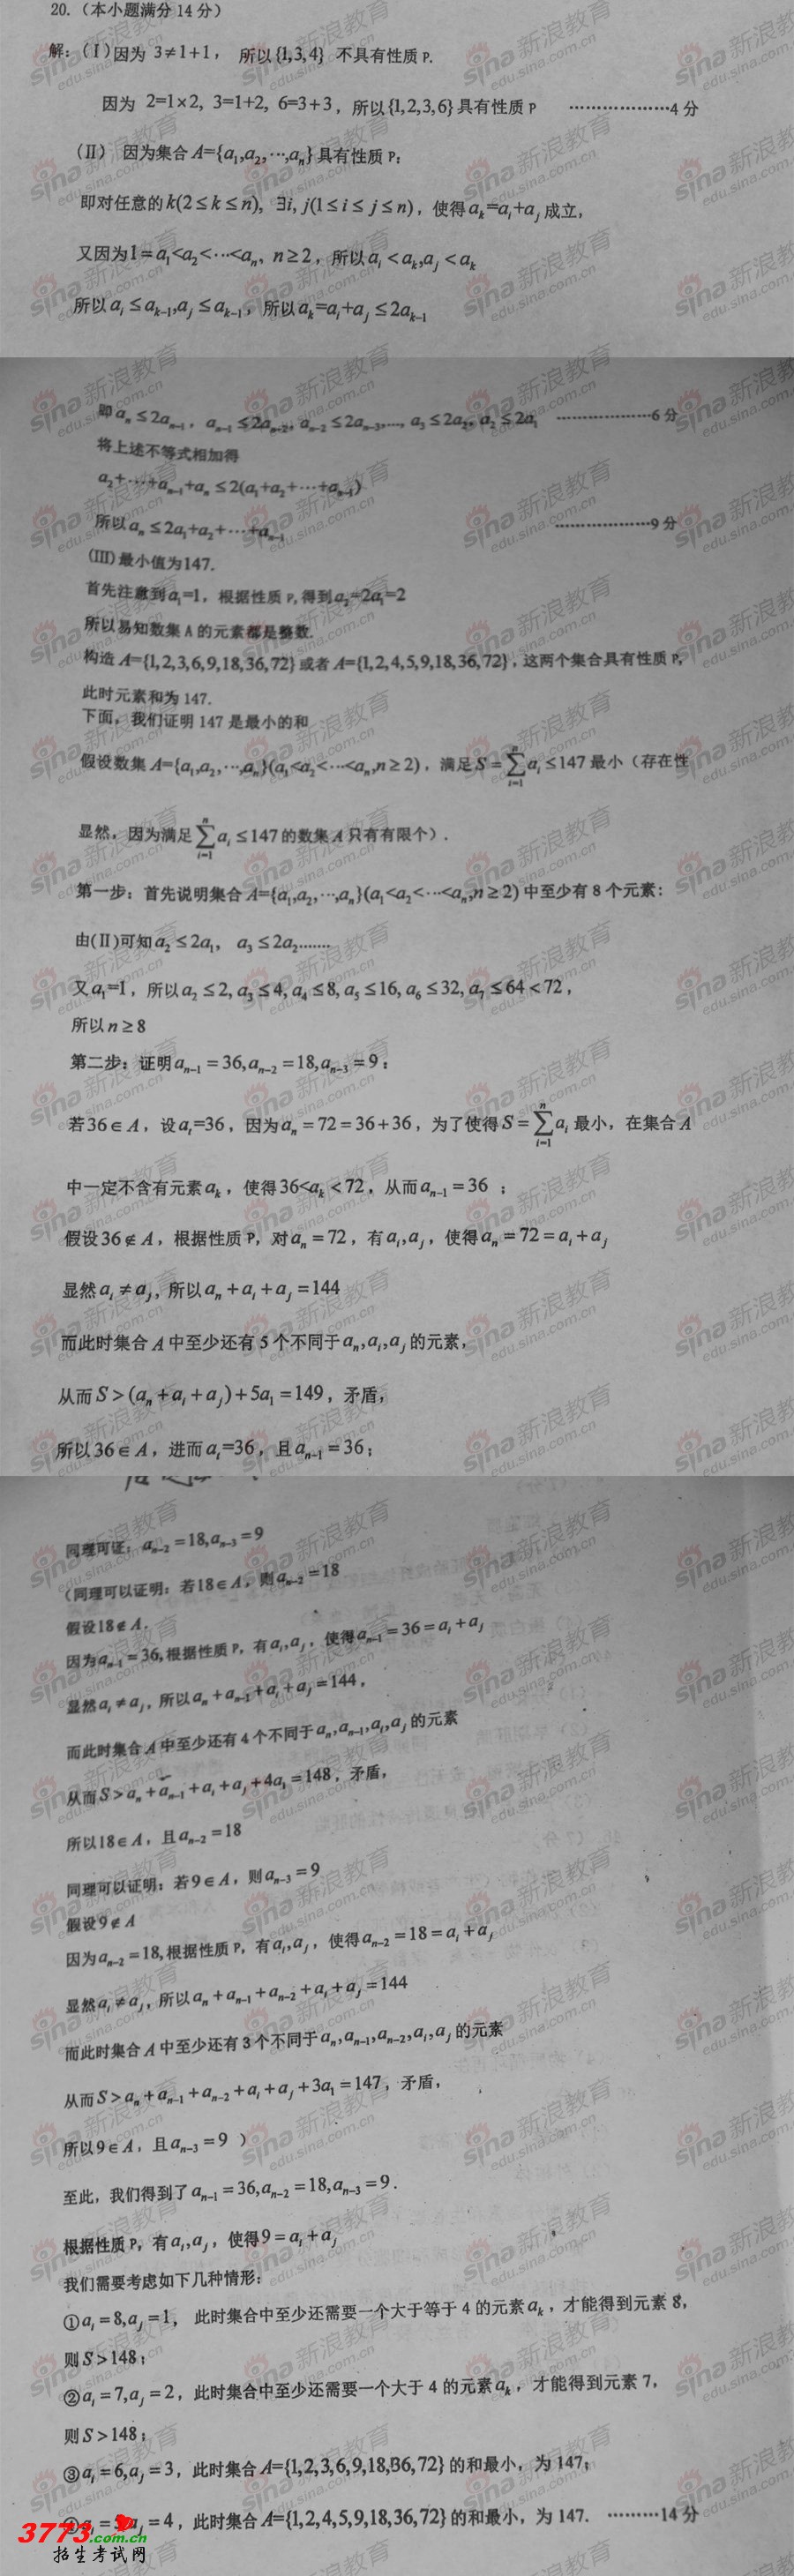 20.（本小题满分14分）
解:（Ⅰ）因为 3≠1+1， 所以{1,3,4} 不具有性质P.
因为 2=1×2, 3=1+2, 6=3+3，所以{1,2,3,6}具有性质P ………………4分
（Ⅱ） 因为集合A={a₁,a₂,⋯,aₙ}具有性质P:
即对任意的k(2≤k≤n), ∃i, j(1≤i≤j≤n)，使得aₖ=aᵢ+aⱼ成立，
又因为1=a₁<a₂<⋯<aₙ, n≥2，所以aᵢ<aₖ,aⱼ<aₖ
所以aᵢ≤aₖ₋₁,aⱼ≤aₖ₋₁，所以aₖ=aᵢ+aⱼ≤2aₖ₋₁
即aₙ≤2aₙ₋₁，aₙ₋₁≤2aₙ₋₂, aₙ₋₂≤2aₙ₋₃,..., a₃≤2a₂, a₂≤2a₁ ………………6分
将上述不等式相加得
a₂+⋯+aₙ₋₁+aₙ≤2(a₁+a₂+⋯+aₙ₋₁)
所以aₙ≤2a₁+a₂+⋯+aₙ₋₁ ………………9分
(III)最小值为147.
首先注意到a₁=1，根据性质P,得到a₂=2a₁=2
所以易知数集A的元素都是整数.
构造A={1,2,3,6,9,18,36,72}或者A={1,2,4,5,9,18,36,72}，这两个集合具有性质P,
此时元素和为147.
下面，我们证明147是最小的和
假设数集A={a₁,a₂,⋯,aₙ}(a₁<a₂<⋯<aₙ,n≥2)，满足S=∑ⁿᵢ₌₁aᵢ≤147最小（存在性
显然，因为满足∑ⁿᵢ₌₁aᵢ≤147的数集A只有有限个）.
第一步：首先说明集合A={a₁,a₂,⋯,aₙ}(a₁<a₂<⋯<aₙ,n≥2)中至少有8个元素：
由(Ⅱ)可知a₂≤2a₁， a₃≤2a₂.......
又a₁=1，所以a₂≤2, a₃≤4, a₄≤8, a₅≤16, a₆≤32, a₇≤64<72，
所以n≥8
第二步：证明aₙ₋₁=36,aₙ₋₂=18,aₙ₋₃=9：
若36∈A，设aₜ=36，因为aₙ=72=36+36，为了使得S=∑ⁿᵢ₌₁aᵢ最小，在集合A
中一定不含有元素aₖ，使得36<aₖ<72，从而aₙ₋₁=36；
假设36∉A，根据性质P，对aₙ=72，有aᵢ,aⱼ，使得aₙ=72=aᵢ+aⱼ
显然aᵢ≠aⱼ，所以aₙ+aᵢ+aⱼ=144
而此时集合A中至少还有5个不同于aₙ,aᵢ,aⱼ的元素，
从而S>(aₙ+aᵢ+aⱼ)+5a₁=149，矛盾，
所以36∈A，进而aₜ=36，且aₙ₋₁=36；
同理可证：aₙ₋₂=18,aₙ₋₃=9
（同理可以证明：若18∈A，则aₙ₋₂=18
假设18∉A.
因为aₙ₋₁=36,根据性质P，有aᵢ,aⱼ，使得aₙ₋₁=36=aᵢ+aⱼ
显然aᵢ≠aⱼ，所以aₙ+aₙ₋₁+aᵢ+aⱼ=144，
而此时集合A中至少还有4个不同于aₙ,aₙ₋₁,aᵢ,aⱼ的元素
从而S>aₙ+aₙ₋₁+aᵢ+aⱼ+4a₁=148，矛盾，
所以18∈A，且aₙ₋₂=18
同理可以证明：若9∈A，则aₙ₋₃=9
假设9∉A
因为aₙ₋₂=18,根据性质P，有aᵢ,aⱼ，使得aₙ₋₂=18=aᵢ+aⱼ
显然aᵢ≠aⱼ，所以aₙ+aₙ₋₁+aₙ₋₂+aᵢ+aⱼ=144
而此时集合A中至少还有3个不同于aₙ,aₙ₋₁,aₙ₋₂,aᵢ,aⱼ的元素
从而S>aₙ+aₙ₋₁+aₙ₋₂+aᵢ+aⱼ+3a₁=147，矛盾，
所以9∈A，且aₙ₋₃=9 ）
至此，我们得到了aₙ₋₁=36,aₙ₋₂=18,aₙ₋₃=9.
根据性质P，有aᵢ,aⱼ，使得9=aᵢ+aⱼ
我们需要考虑如下几种情形：
①aᵢ=8,aⱼ=1， 此时集合中至少还需要一个大于等于4的元素aₖ，才能得到元素8，
则S>148；
②aᵢ=7,aⱼ=2，此时集合中至少还需要一个大于4的元素aₖ，才能得到元素7，
则S>148；
③aᵢ=6,aⱼ=3，此时集合A={1,2,3,6,9,18,36,72}的和最小，为147；
④aᵢ=5,aⱼ=4，此时集合A={1,2,4,5,9,18,36,72}的和最小，为147. ………14分
3773.com.cn
招生考试网
sina新浪教育
edu.sina.com.cn